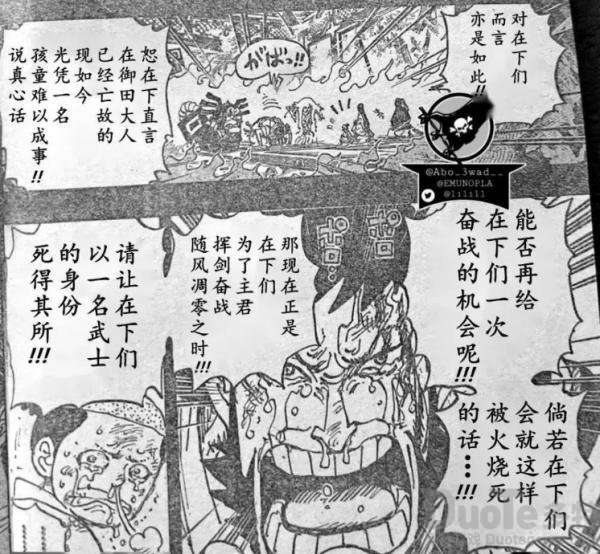 对在下们
而言
亦是如此!!
がばっ!!
@Abo_3wad__
@EMUNOPLA
@lilill
恕在下直言
在御田大人
已经亡故的
现如今
光凭一名
孩童难以成事!!
说真心话
能否再给
在下们一次
奋战的机会呢!!!
倘若在下们
会就这样
被火烧死
的话…!!!
那现在正是
在下们
为了主君
挥剑奋战
随风凋零之时!!!
请让在下们
以一名武士
的身份
死得其所!!!